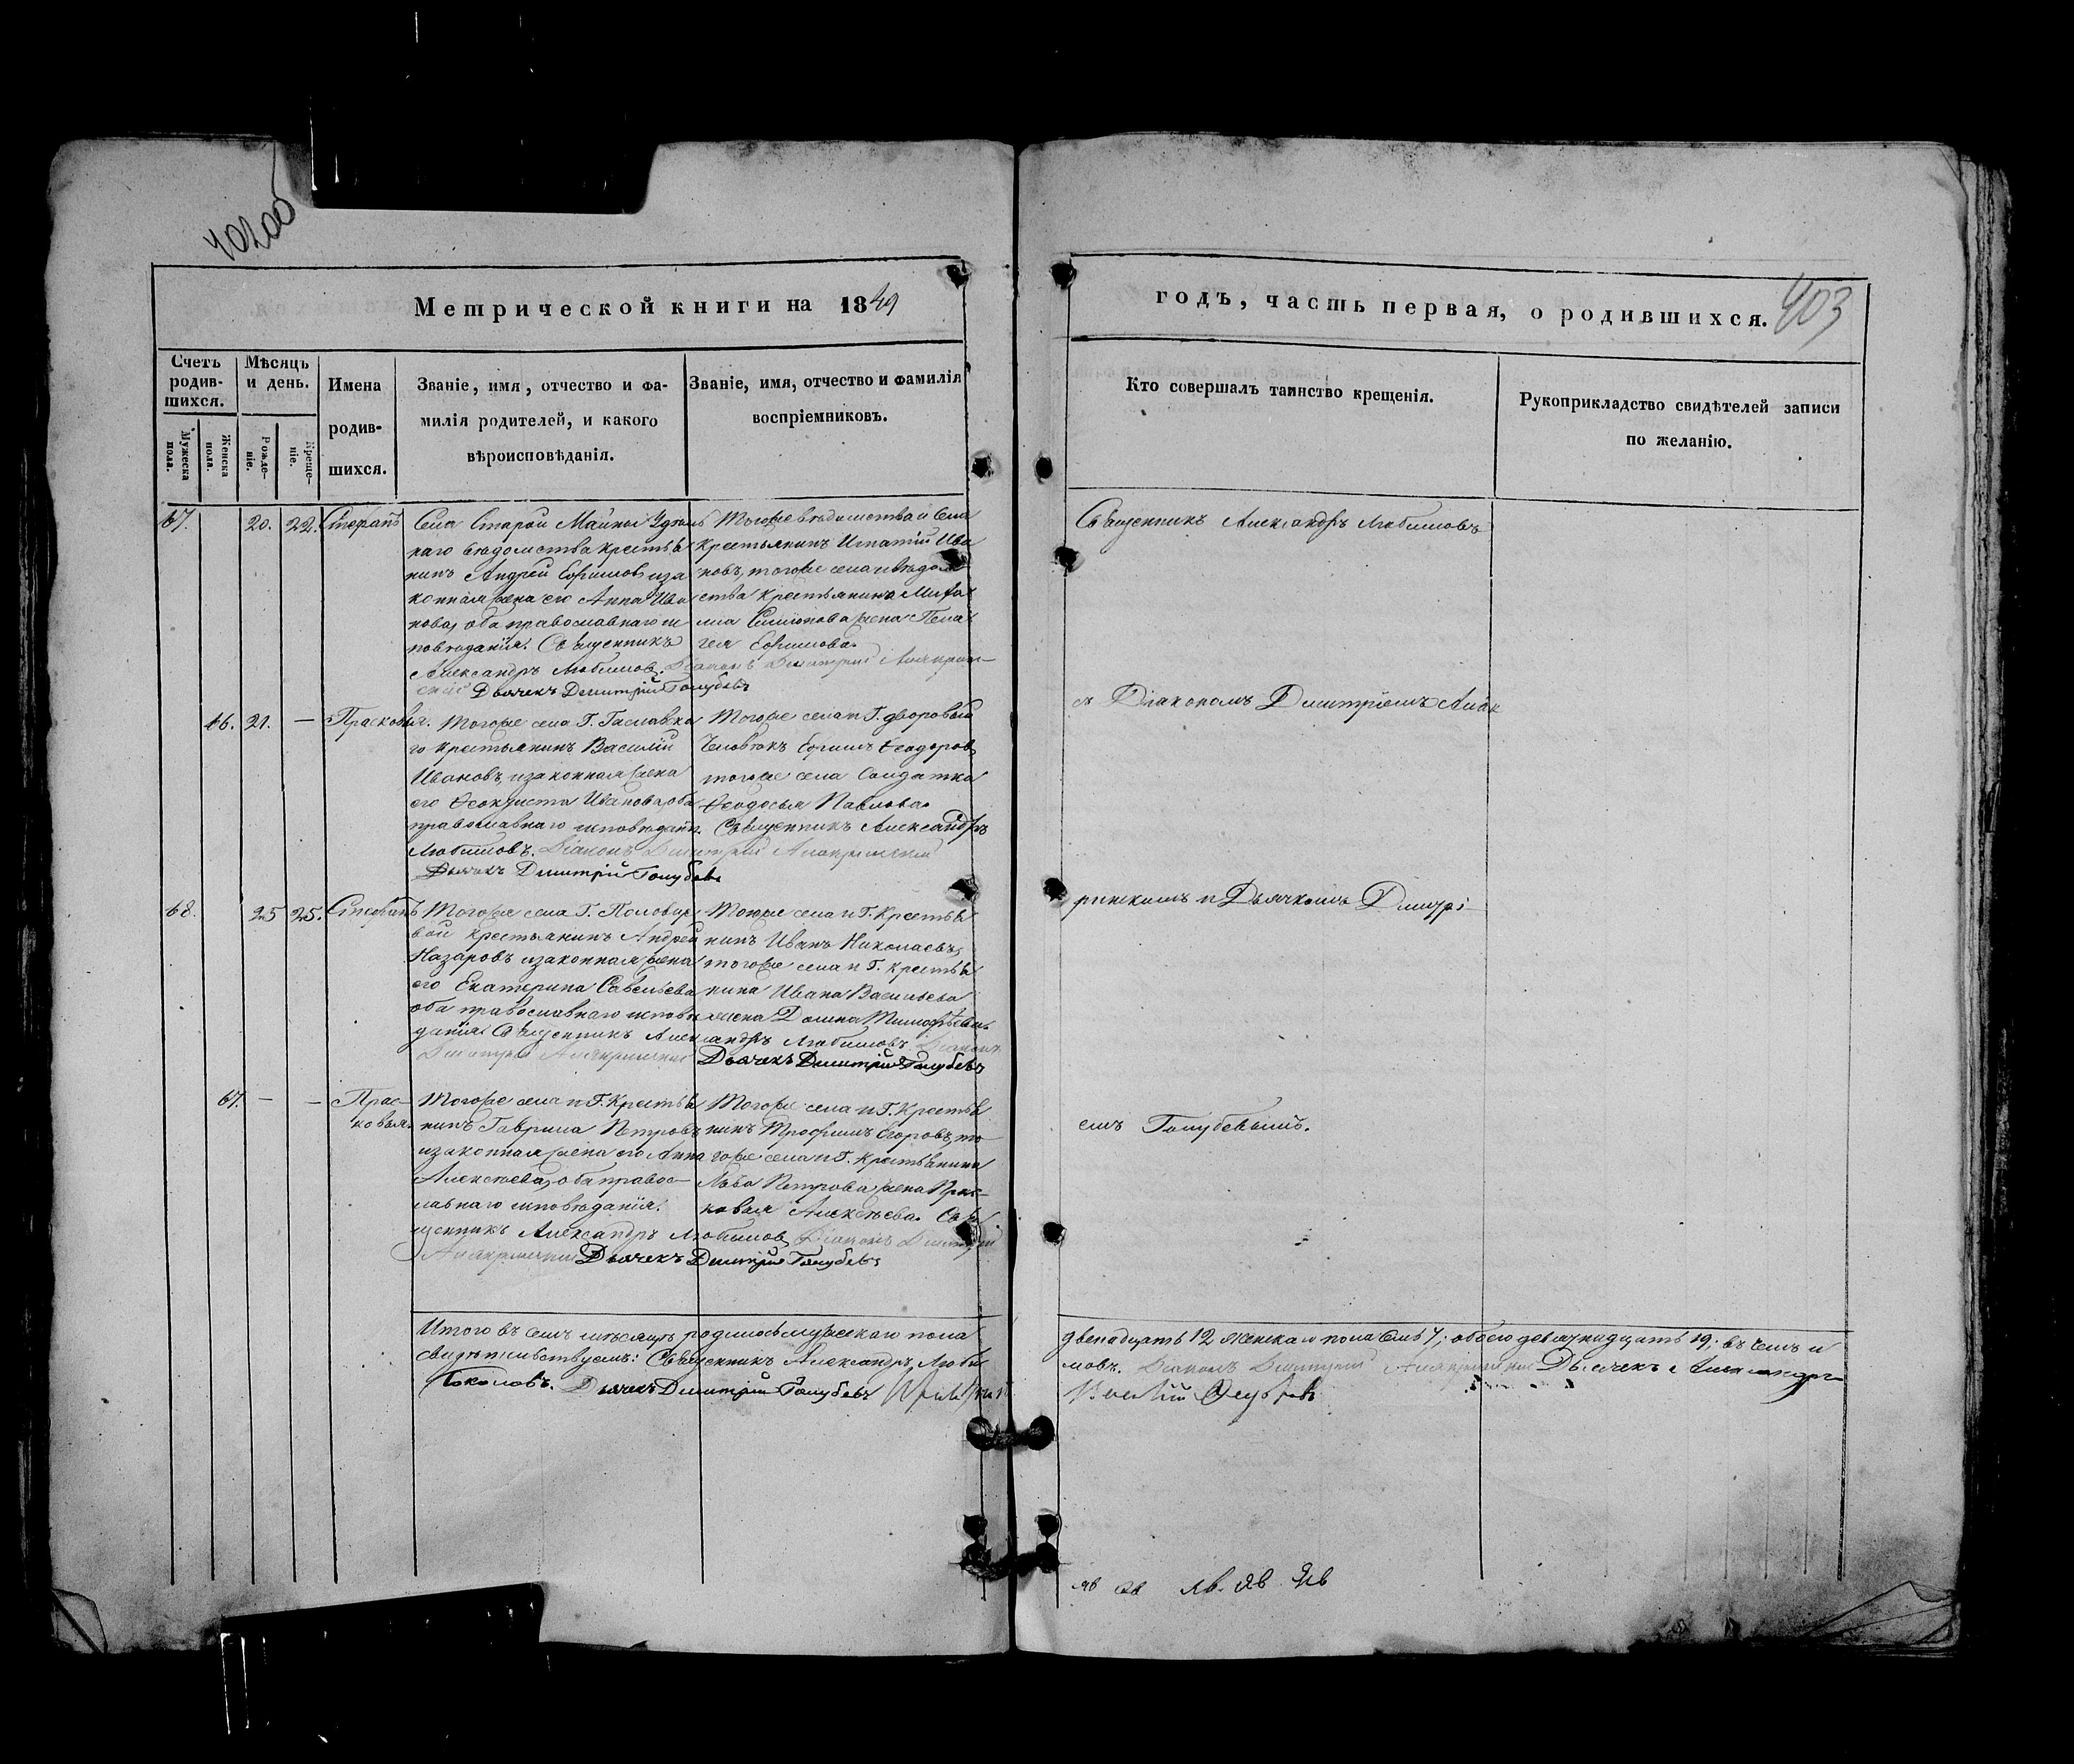 Метрической книги на 1849
годъ, часть первая, о родившихся. 403
Счетъ родив-шихся.
Мужеска пола.
Женска пола.
Мѣсяцъ и день.
Рожде-ніе.
Креще-ніе.
Имена
родив-
шихся.
Званіе, имя, отчество и фа-
милія родителей, и какого
вѣроисповѣданія.
Званіе, имя, отчество и фамилія
воспріемниковъ.
Кто совершалъ таинство крещенія.
Рукоприкладство свидѣтелей записи
по желанію.
67. 20. 22. Стефанъ
Села Старой Майны Удѣль
наго вѣдомства крестья
нинъ Андрей Ефимовъ иза
конная жена его Анна Ива
нова, оба православнаго ис
повѣданія. Священникъ
Александръ Любимовъ. Діаконъ Димитрій
Дьячекъ Димитрій Голубевъ
Тогоже вѣдомства и села
Крестьянинъ Игнатій Ива
новъ, тогоже села и вѣдом
ства крестьянина Миха
ила Симіонова жена Пела
гея Ефимова.
Священникъ Александръ Любимовъ
66. 21. — Прасковья.
Тогоже села Г.
го крестьянинъ Василій
Ивановъ, изаконная жена
его Ѳеоктиста Иванова, оба
православнаго исповѣданія.
Любимовъ. Діаконъ Димитрій
Дьячекъ Димитрій Голубевъ
Тогоже села и Г. дворовый
Человѣкъ Ефимъ Ѳеодоровъ,
тогоже села Солдатка
Ѳеодосья Павлова.
Священникъ Александръ
съ Діакономъ Димитріемъ
68. 25 25. Стефанъ
Тогоже села Г.
вой крестьянинъ Андрей
Назаровъ изаконная жена
его Екатерина Савельева
оба православнаго исповѣ
данія. Священникъ Александръ Любимовъ Діаконъ
Димитрій Дьячекъ Димитрій Голубевъ
Тогоже села и Г. Крестья
нинъ Иванъ Николаевъ,
тогоже села и Г. крестья
нина Ивана Васильева
жена Домна Тимофѣева.
и Дьячкомъ Димитрі
67. — — Прас-
ковья.
Тогоже села и Г. Крестья
нинъ Гаврила Петровъ
изаконная жена его Анна
Алексѣева, оба правос-
лавнаго исповѣданія.
щенникъ Александръ Любимовъ Діаконъ Димитрій
Дьячекъ Димитрій Голубевъ
Тогоже села и Г. Крестья
нинъ Трофимъ Егоровъ, то
гоже села и Г. Крестьянина
Льва Петрова жена Прас-
ковья Алексѣева. Свя
емъ Голубевымъ.
Итого въ семъ мѣсяцѣ родилось мужескаго пола двенадцать 12 женскаго пола семь 7; обоего девятнадцать 19; въ чемъ и
свидѣтельствуемъ: Священникъ Александръ Люби
мовъ. Діаконъ Димитрій Дьячекъ Александръ
Соколовъ. Дьячекъ Димитрій Голубевъ